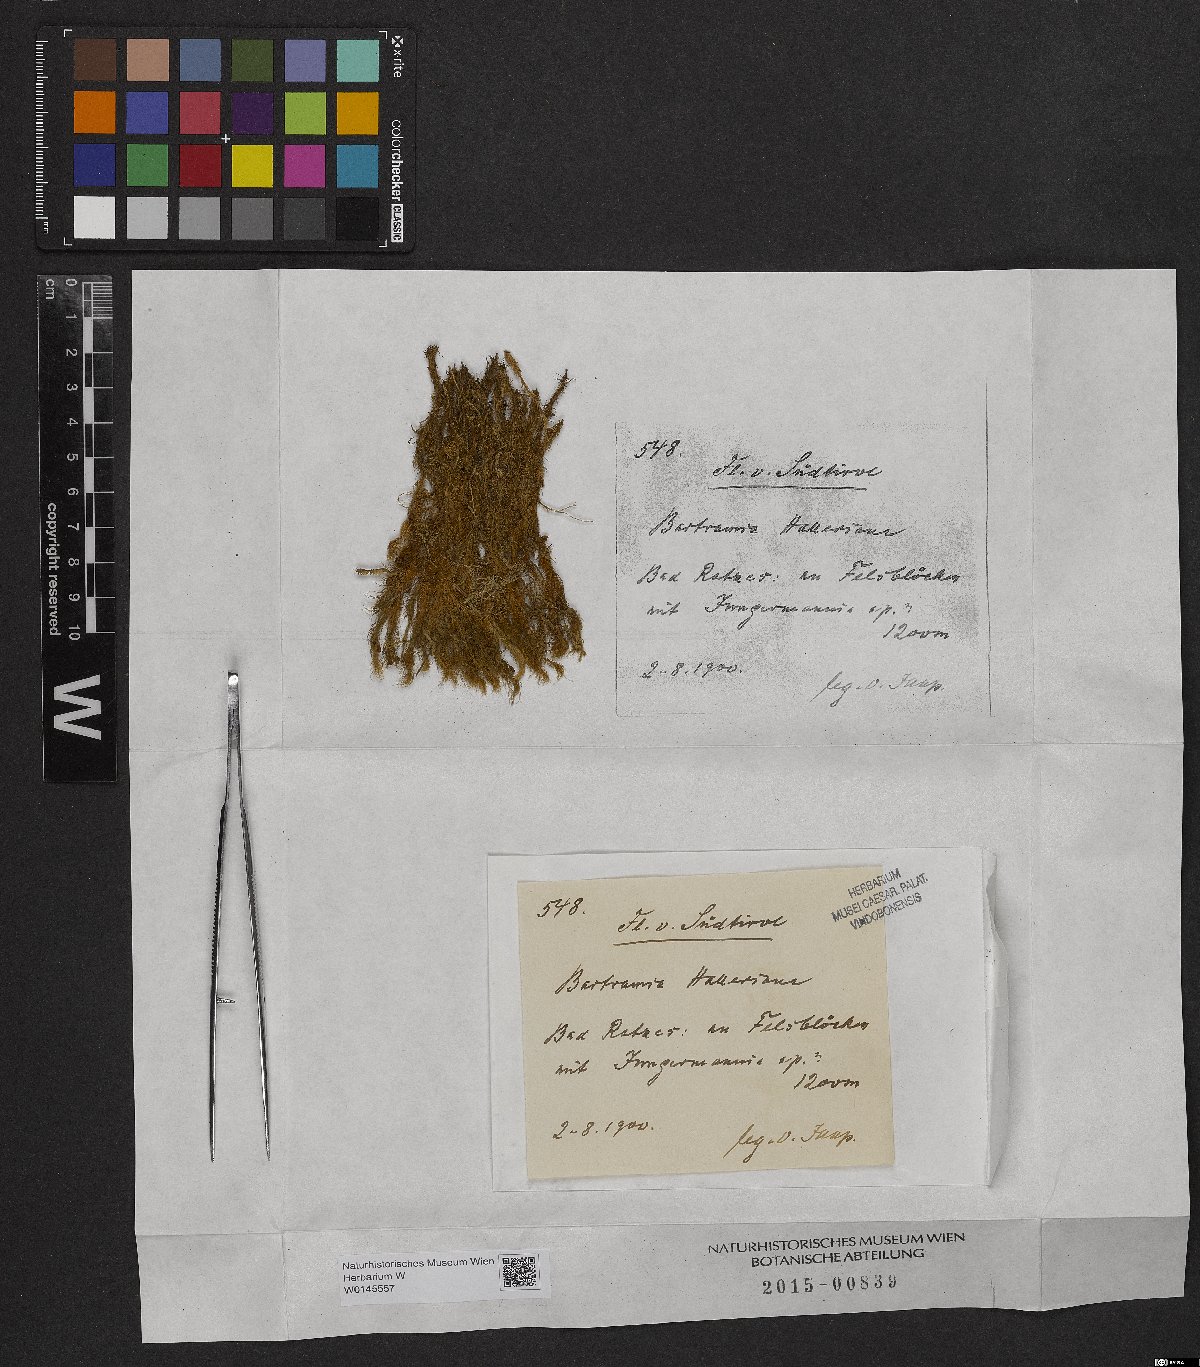 x-rite
colorchecker CLASSIC
mm
0 1 2 3 4 5 6 7 8 9 10
cm
copyright reserved
W
548.
Fl. v. Südtirol
Bartramia Halleriana
Bad Ratzes: an Felsblöcken
mit Jungermannia sp.?
1200m
2-8.1900.
leg. O. Jaap.
HERBARIUM
MUSEI CAESAR. PALAT.
VINDOBONENSIS
548.
Fl. v. Südtirol
Bartramia Halleriana
Bad Ratzes: an Felsblöcken
mit Jungermannia sp.?
1200m
2-8.1900.
leg. O. Jaap.
Naturhistorisches Museum Wien
Herbarium W
W0145557
NATURHISTORISCHES MUSEUM WIEN
BOTANISCHE ABTEILUNG
2015-00839